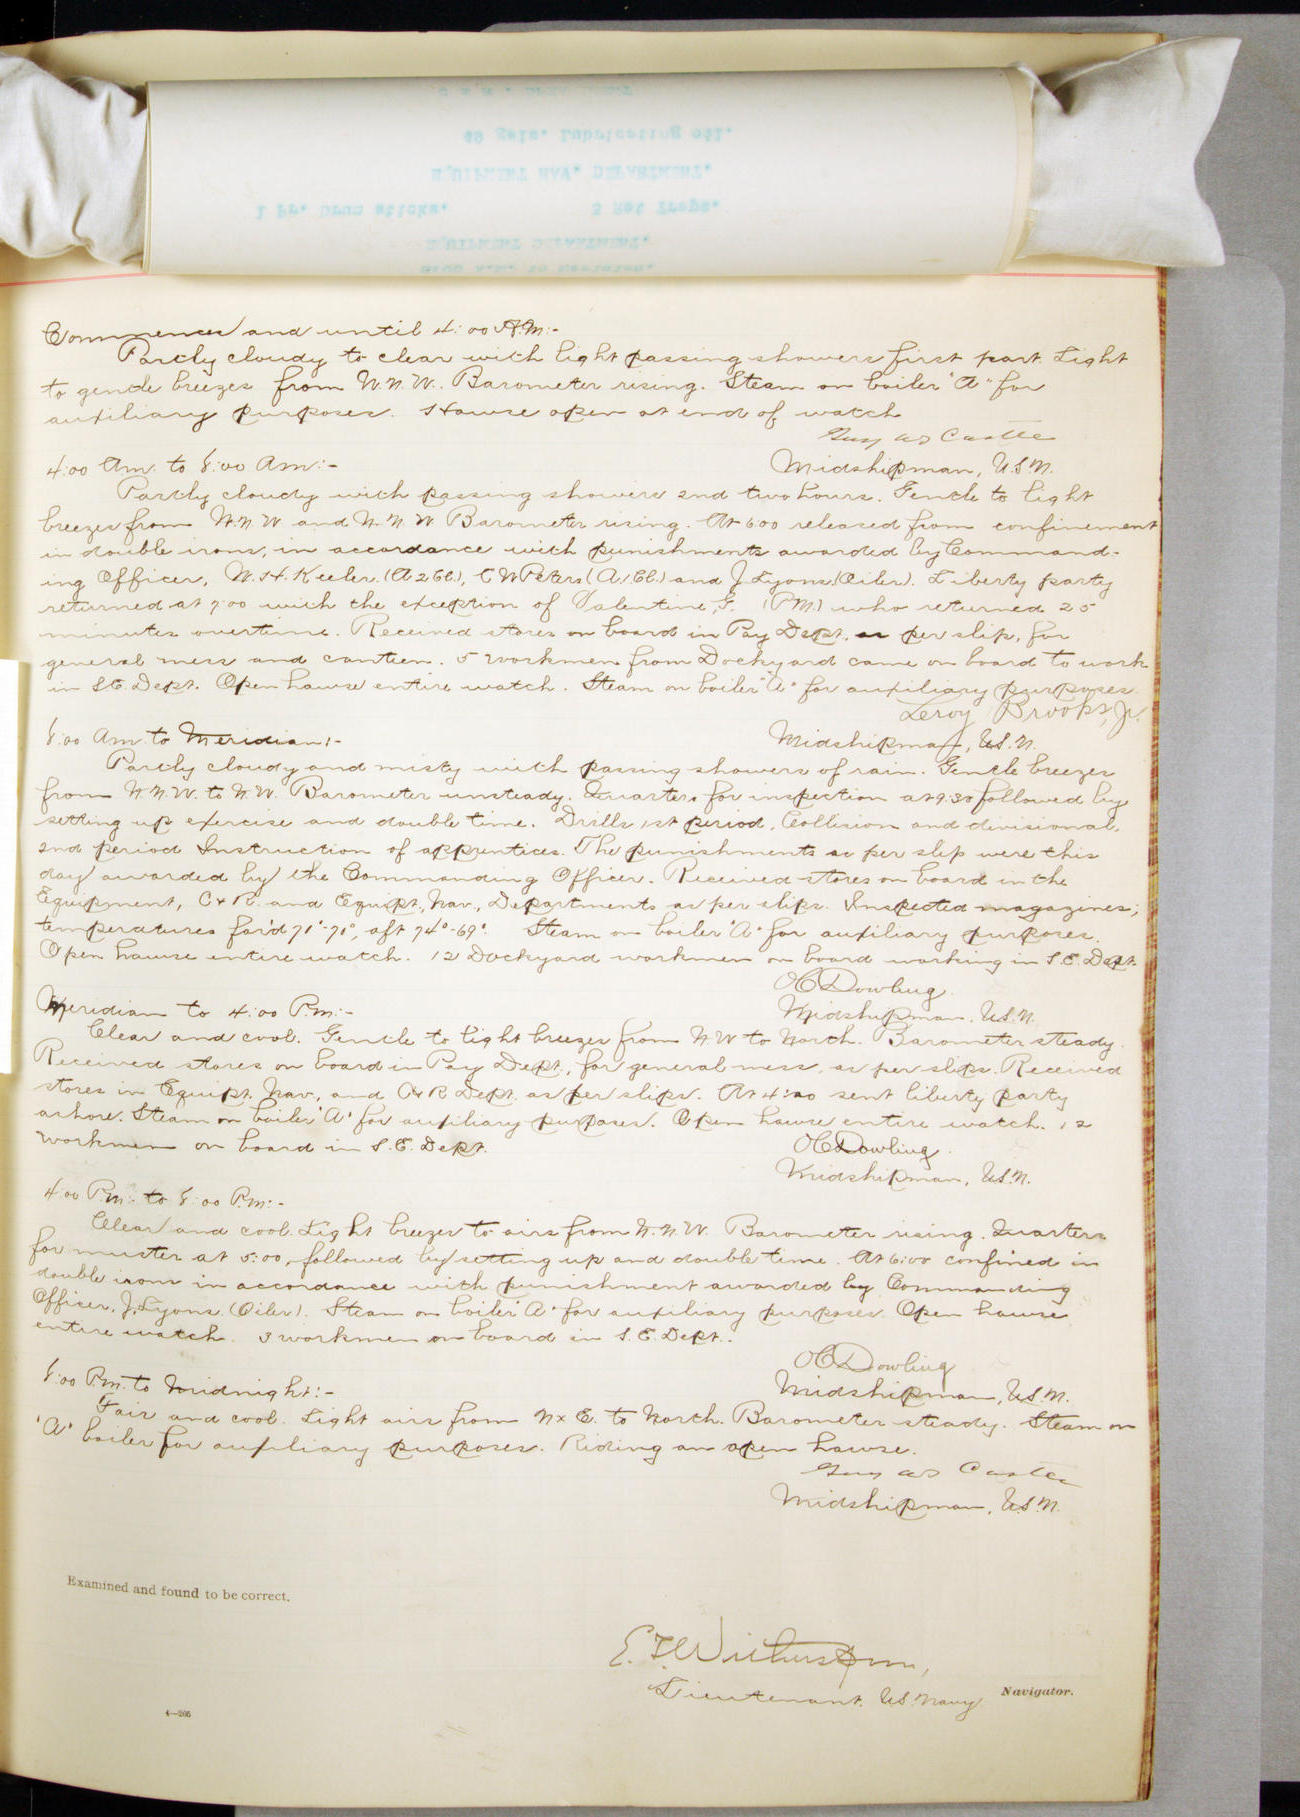 49 gals. Lubricating oil.
EQUIPMENT NAV. DEPARTMENT.
1 Pr. Drum sticks. 2 Rat Traps.
EQUIPMENT DEPARTMENT.
8:00 A.M. to Meridian.
Commences and until 4:00 A.M:-
Partly cloudy to clear with light passing showers first part. Light
to gentle breezes from W.N.W. Barometer rising. Steam on boiler "A" for
auxiliary purposes. Hawse open at end of watch
Guy W S Castle
4:00 Am. to 8:00 Am:-
Midshipman, U.S.N.
Partly cloudy with passing showers 2nd two hours. Gentle to light
breezes from W.N.W and N.N.W Barometer rising. At 6:00 released from confinement
in double irons, in accordance with punishments awarded by Command-
ing Officer, W.H. Keeler (A 2 Cl.), C W Peters (A 1 Cl.) and J Lyons (Oiler). Liberty party
returned at 7:00 with the exception of Valentine, G. (P.M.) who returned 25
minutes overtime. Received stores on board in Pay Dept. as per slip, for
general mess and canteen. 5 workmen from Dockyard came on board to work
in S.E. Dept. Open hawse entire watch. Steam on boiler "A" for auxiliary purposes.
Leroy Brooks, Jr.
8:00 Am to Meridian:-
Midshipman, U.S.N.
Partly cloudy and misty with passing showers of rain. Gentle breezes
from N.N.W. to N.W. Barometer unsteady. Quarters for inspection at 9:30 followed by
setting up exercise and double time. Drills 1st period, Collision and divisional,
2nd period Instruction of apprentices. The punishments as per slip were this
day awarded by the Commanding Officer. Received stores on board in the
Equipment, C & R. and Equipt, Nav., Departments as per slips. Inspected magazines;
temperatures for'd 71°-70°, aft 74°-69°. Steam on boiler "A" for auxiliary purposes.
Open hawse entire watch. 12 Dockyard workmen on board working in S.E. Dept.
O C Dowling
Meridian to 4:00 P.m:-
Midshipman, U.S.N.
Clear and cool. Gentle to light breezes from NW to North. Barometer steady.
Received stores on board in Pay Dept., for general mess, as per slips. Received
stores in Equipt. Nav., and C & R Dept. as per slips. At 4:00 sent liberty party
ashore. Steam on boiler "A" for auxiliary purposes. Open hawse entire watch. 12
workmen on board in S.E. Dept.
O C Dowling
Midshipman, U.S.N.
4:00 P.m. to 8:00 P.m:-
Clear and cool. Light breezes to airs from N.N.W. Barometer rising. Quarters
for muster at 5:00, followed by setting up and double time. At 6:00 confined in
double irons in accordance with punishment awarded by Commanding
Officer, J. Lyons (Oiler). Steam on boiler "A" for auxiliary purposes. Open hawse
entire watch. 3 workmen on board in S.E. Dept.
O C Dowling
8:00 P.m. to Midnight:-
Midshipman, U.S.N.
Fair and cool. Light airs from N x E. to North. Barometer steady. Steam on
"A" boiler for auxiliary purposes. Riding an open hawse.
Guy W S Castle
Midshipman, U.S.N.
Examined and found to be correct.
Lieutenant. U.S. Navy Navigator.
4—205